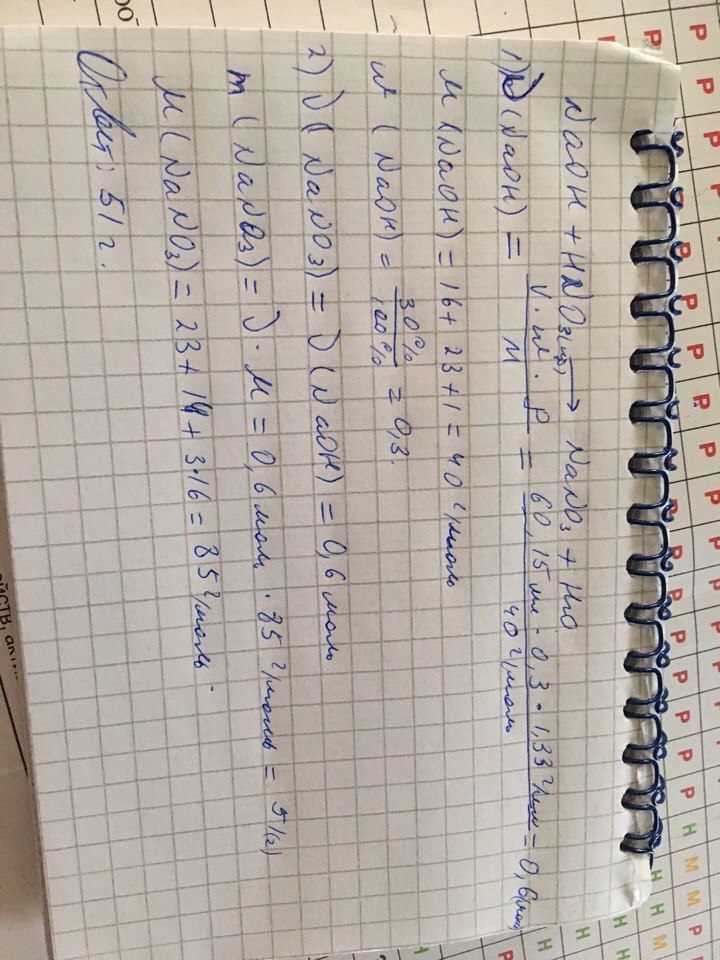 NaOH + HNO3(изб) → NaNO3 + H2O
1) ν(NaOH) = V·w·ρ / M = 60,15 мл · 0,3 · 1,33 г/мл / 40 г/моль = 0,6 (моль)
M(NaOH) = 16 + 23 + 1 = 40 г/моль
w(NaOH) = 30% / 100% = 0,3.
2) ν(NaNO3) = ν(NaOH) = 0,6 моль
m(NaNO3) = ν · M = 0,6 моль · 85 г/моль = 51 (г)
M(NaNO3) = 23 + 14 + 3·16 = 85 г/моль.
Ответ: 51 г.